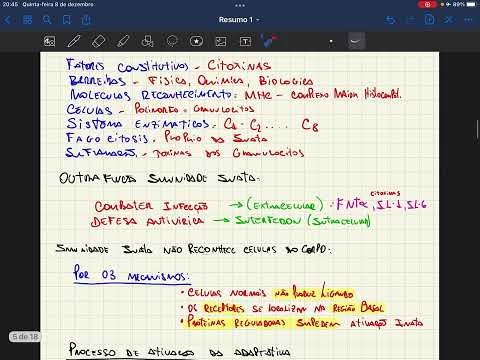 20:45 Quinta-feira 8 de dezembro
89%
Resumo 1
Fatores constitutivos - Citozinas
Barreiras - Física, Química, Biológica
Moléculas Reconhecimento: MHC - Complexo Maior Histocompat.
Células - Polimorfo = Granulócitos
Sistema Enzimáticos: C1 - C2 .... C8
Fagocitosis. Próprio da Inata
Inflamação - Toxinas dos Granulócitos
Outra função Imunidade Inata:
Combater Infecção → (Extracelular) :
citozinas
FNTα, IL-1, IL-6
Defesa Antiviral → Interferon (Intracelular)
Imunidade Inata não reconhece células do corpo:
Por 03 mecanismos:
• Células normais não produz ligando
• Os receptores se localizam na região Basal
• Proteínas reguladoras impedem ativação Inata
5 de 18
Processo de ativação da adaptativa